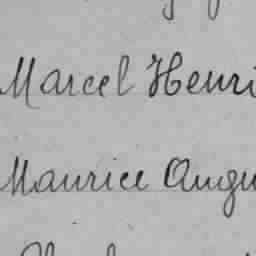 Marcel Henri
Maurice Augu